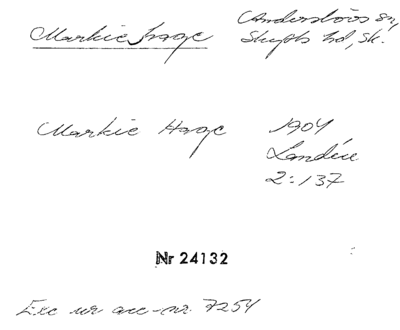 Markie hage
Anderstorps sn,
Skytts hd, sk.
Markie Hage
1904
Landée
2:137
Nr 24132
Exc ur acc-nr. 7254